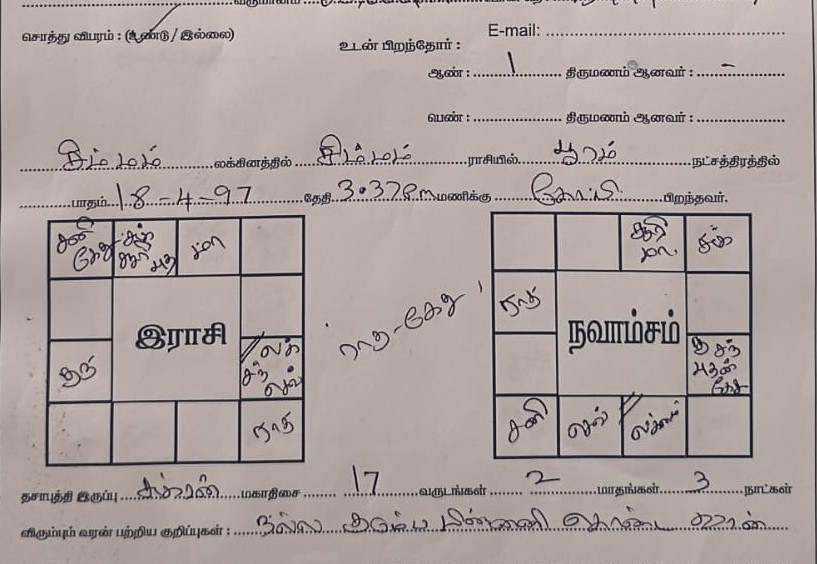 சொத்து விபரம் : (உண்டு / இல்லை)
E-mail:
உடன் பிறந்தோர் :
ஆண் : 1 திருமணம் ஆனவர் : -
பெண் : திருமணம் ஆனவர் :
சிம்மம் லக்கினத்தில் சிம்மம் ராசியில் பூரம் நட்சத்திரத்தில்
பாதம் 18-4-97 தேதி 3.37 Pm மணிக்கு கோபி பிறந்தவர்.
சனி கேது சுக் சூரி புத மா
இராசி
குரு
லக் சந் செவ்
ராகு
ராகு-கேது
சூரி மா சுக்
ராகு
நவாம்சம்
கு சந் புதன் கேது
சனி செவ் லக்னம்
தசாபுத்தி இருப்பு சுக்ரன் மகாதிசை 17 வருடங்கள் 2 மாதங்கள் 3 நாட்கள்
விரும்பும் வரன் பற்றிய குறிப்புகள் : நல்ல குடும்ப பின்னணி கொண்ட வரன்